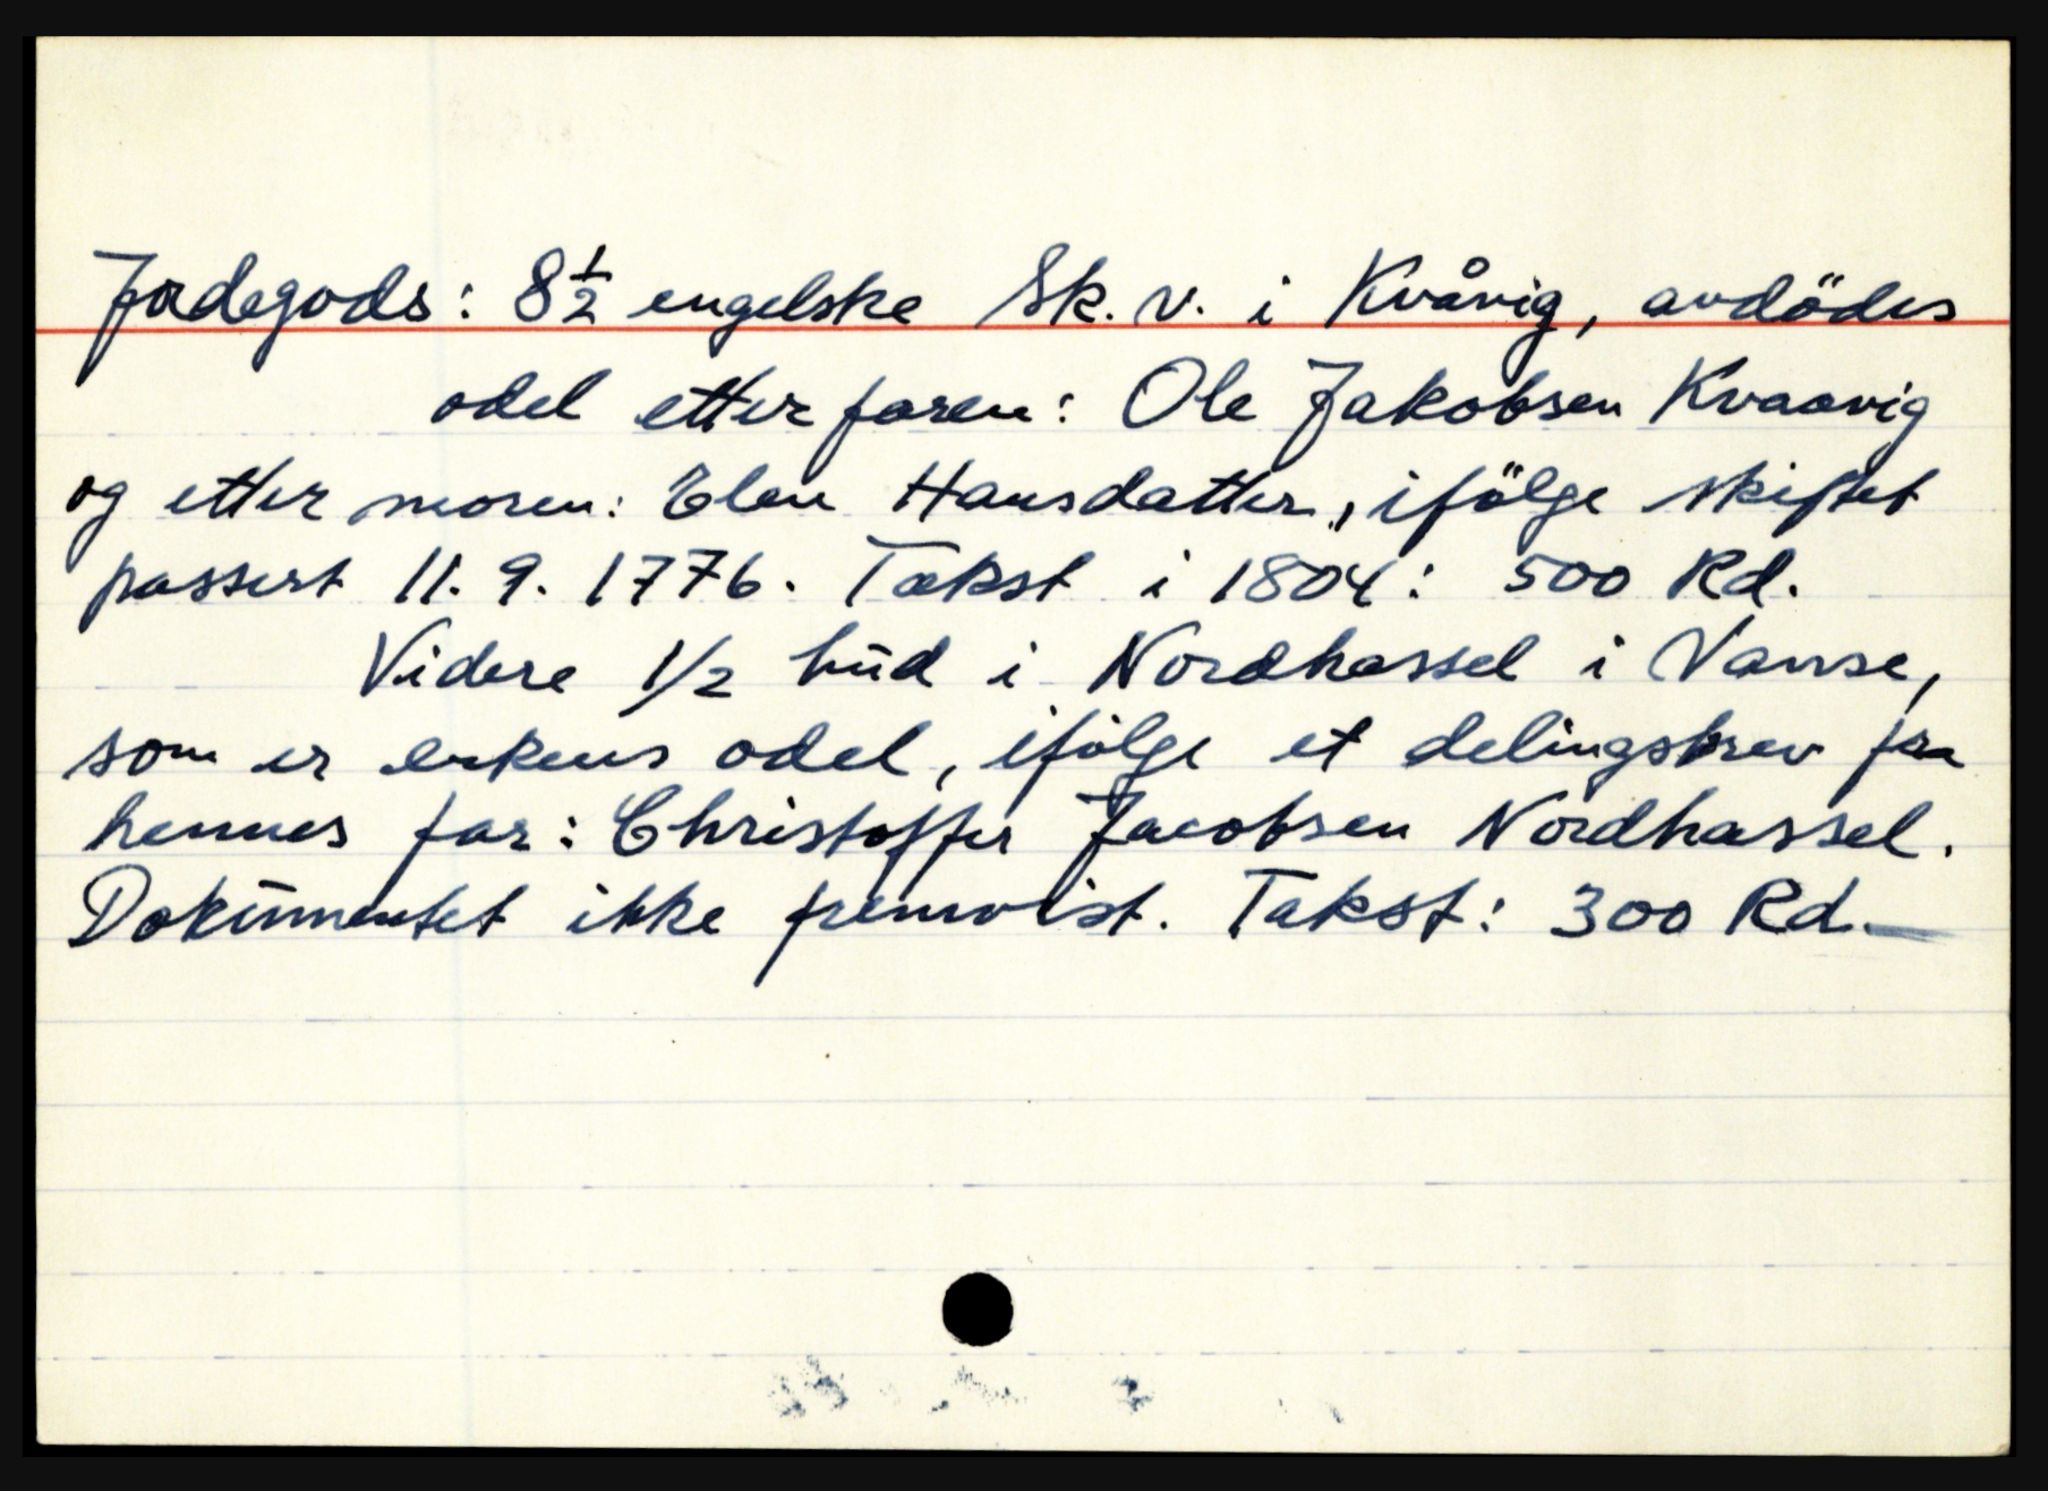 Jordegods: 8 1/2 engelske Sk. v. i Kvåvig, avdödes
odel etter faren: Ole Jakobsen Kvaavig
og etter moren: Elen Hansdatter, ifölge skiftet
passert 11. 9. 1776. Takst i 1804: 500 Rd.
Videre 1/2 hud i Nordhassel i Vanse,
som er enkens odel, ifölge et delingsbrev fra
hennes far: Christoffer Jacobsen Nordhassel.
Dokumentet ikke fremvist. Takst: 300 Rd.—